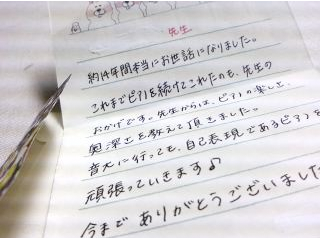 先生
約14年間本当にお世話になりました。
これまでピアノを続けてこれたのも、先生の
おかげです。先生からは、ピアノの楽しさ、
奥深さを教えて頂きました。
音大に行っても、自己表現であるピアノを
頑張っていきます♪
今まで ありがとうございました